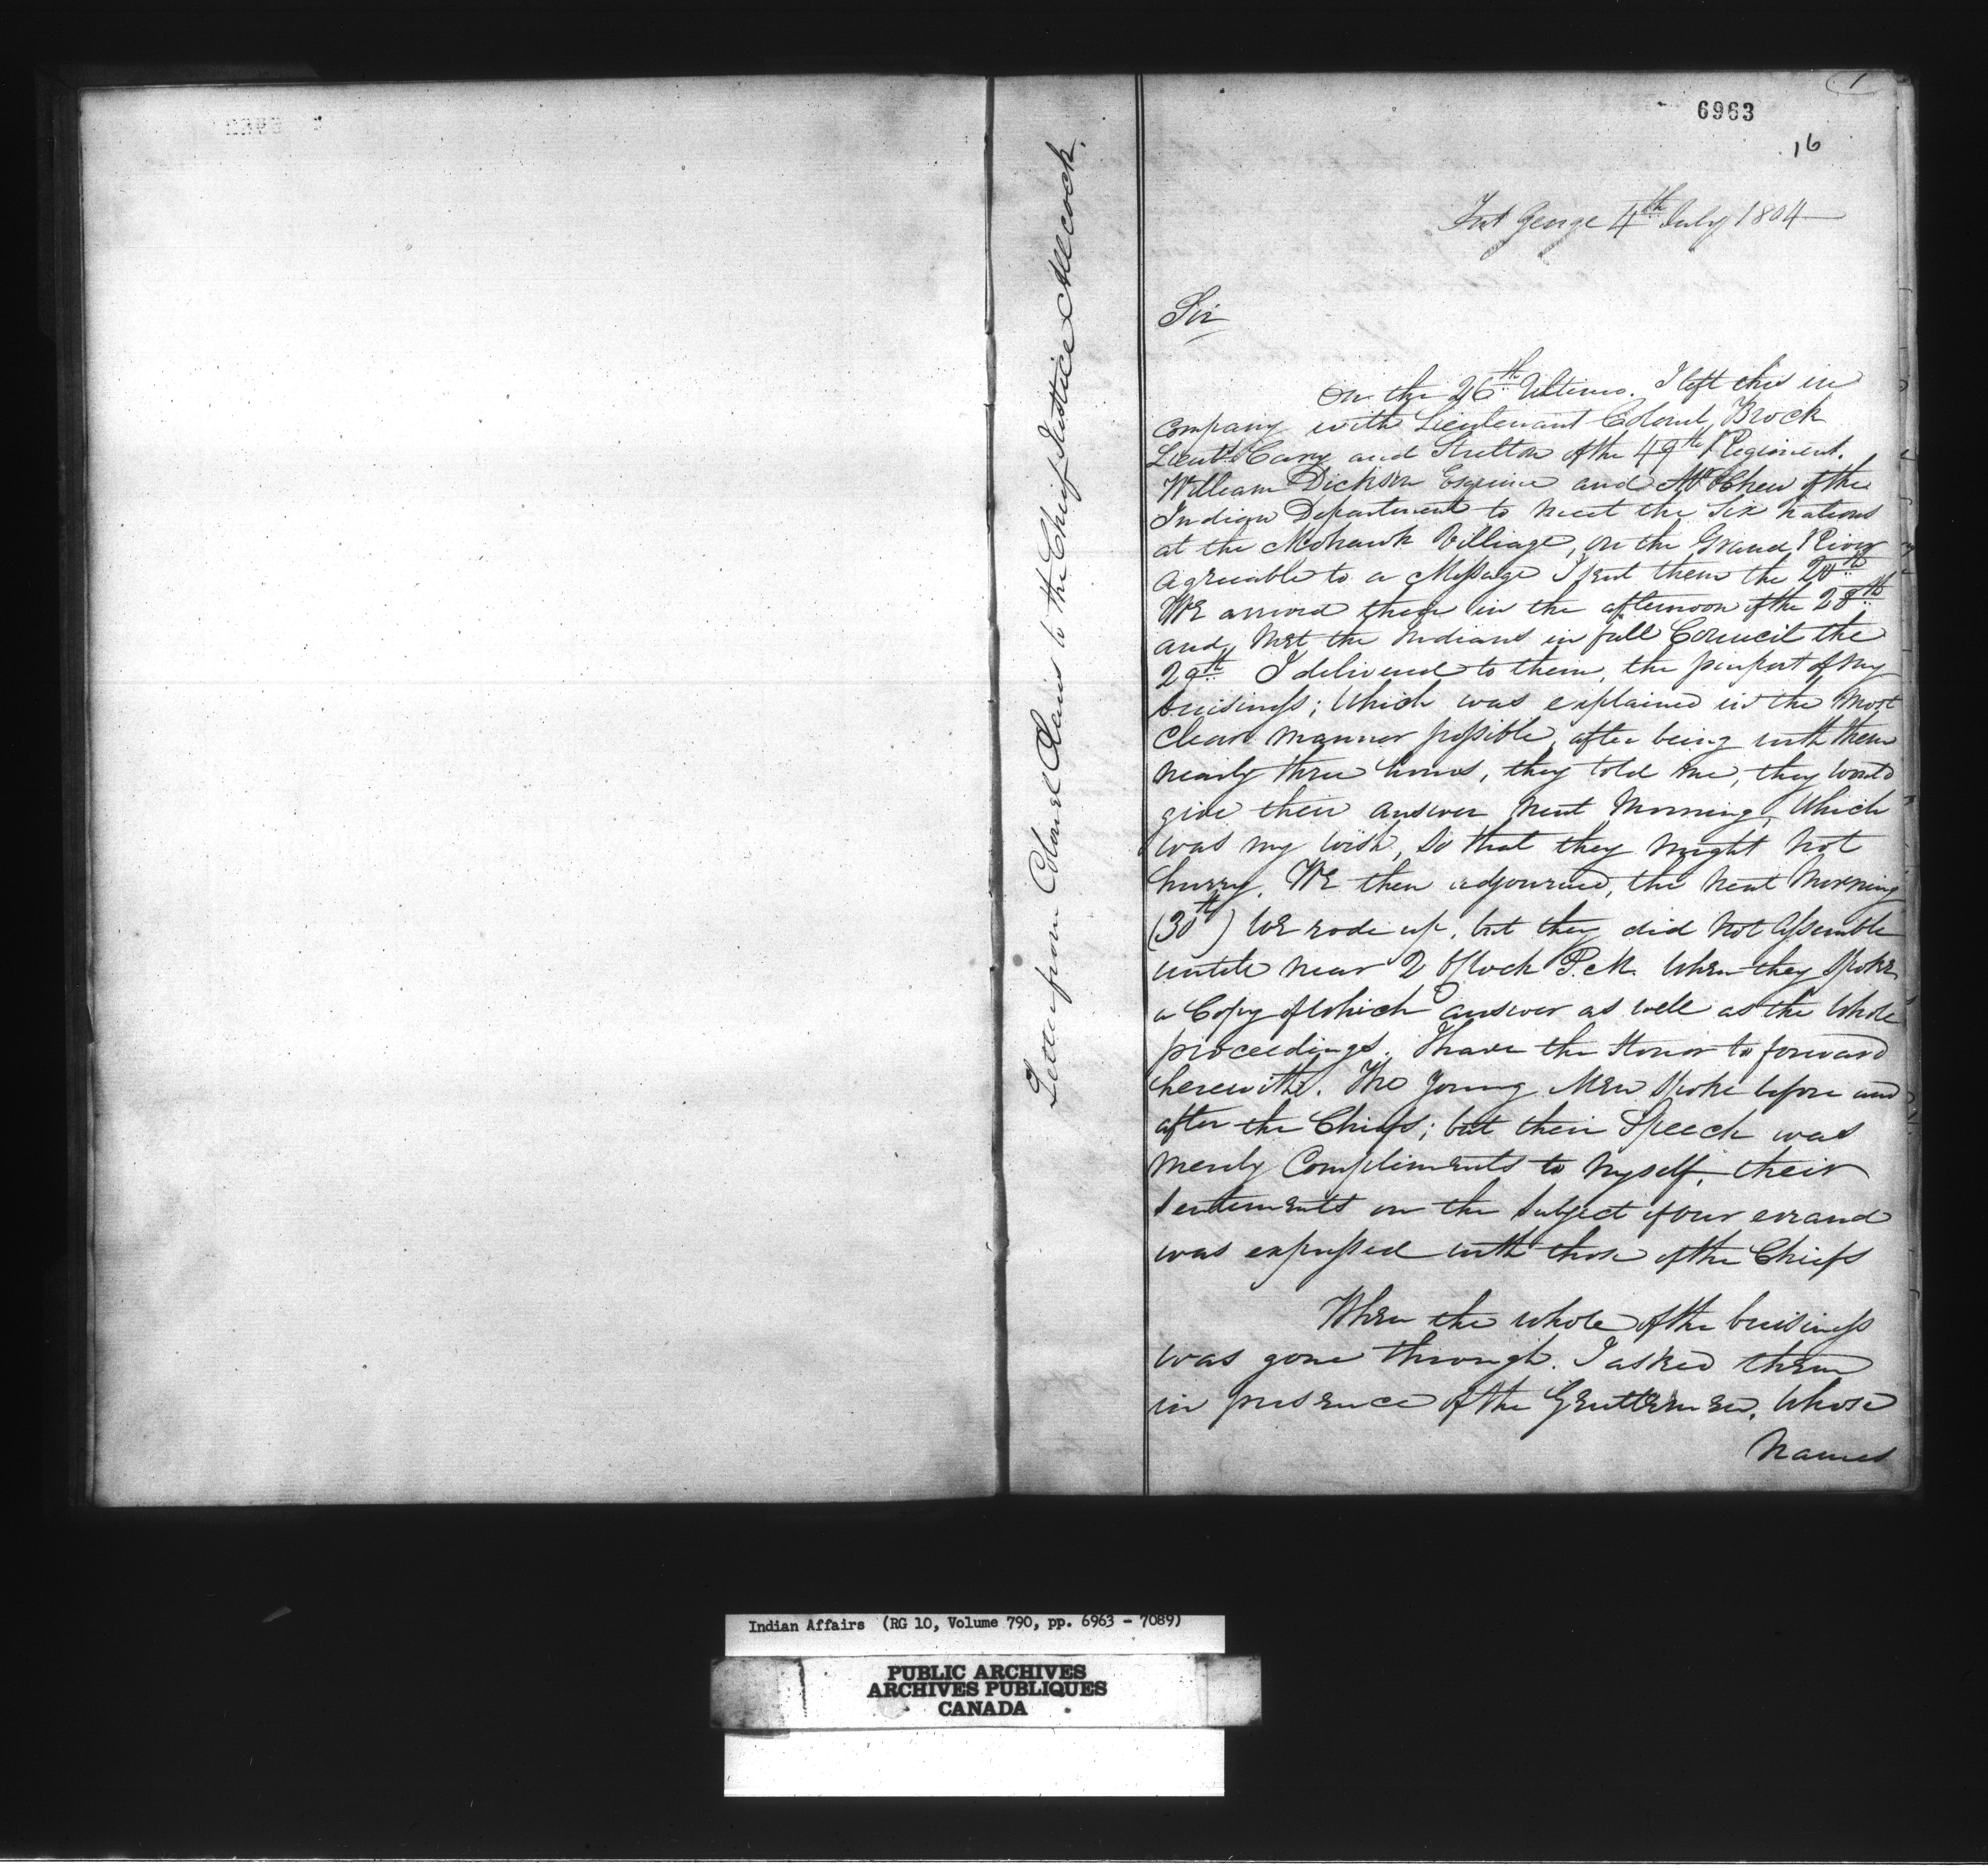 1
6963
16
Letter from Colonel Claus to the Chief Justice Allcock.
Fort George 4th July 1804
Sir
On the 26th Ultimo. I left this in
Company with Lieutenant Colonel Brock
Lieuts and Stretton of the 49th Regiment.
William Dickson Esquire and Mr Chew of the
Indian Department to meet the Six Nations
at the Mohawk Villiage, on the Grand River
agreeable to a Message I sent them the 20th
We arrived there in the afternoon of the 28th
and met the Indians in full Council the
29th I delivered to them, the purport of my
buisiness; Which was explained in the Most
Clear manner possible, after being with them
nearly three hours, they told me, they would
give their answer next Morning, Which
was my wish, so that they might not
hurry. We then adjourned, the next Morning
(30th) We rode up, but they did not Assemble
untill near 2 OClock P.M. When they Spoke
a Copy of which answer as well as the Whole
proceedings. I have the Honor to forward
herewith. The Young Men Spoke before and
after the Chiefs; but their Speech was
merely Compliments to Myself, their
Sentiments on the Subject of our errand
was expressed with those of the Chiefs
When the whole of the buisiness
was gone through. I asked them
in presence of the Gentlemen, Whose
Names
Indian Affairs (RG 10, Volume 790, pp. 6963 - 7089)
PUBLIC ARCHIVES
ARCHIVES PUBLIQUES
CANADA